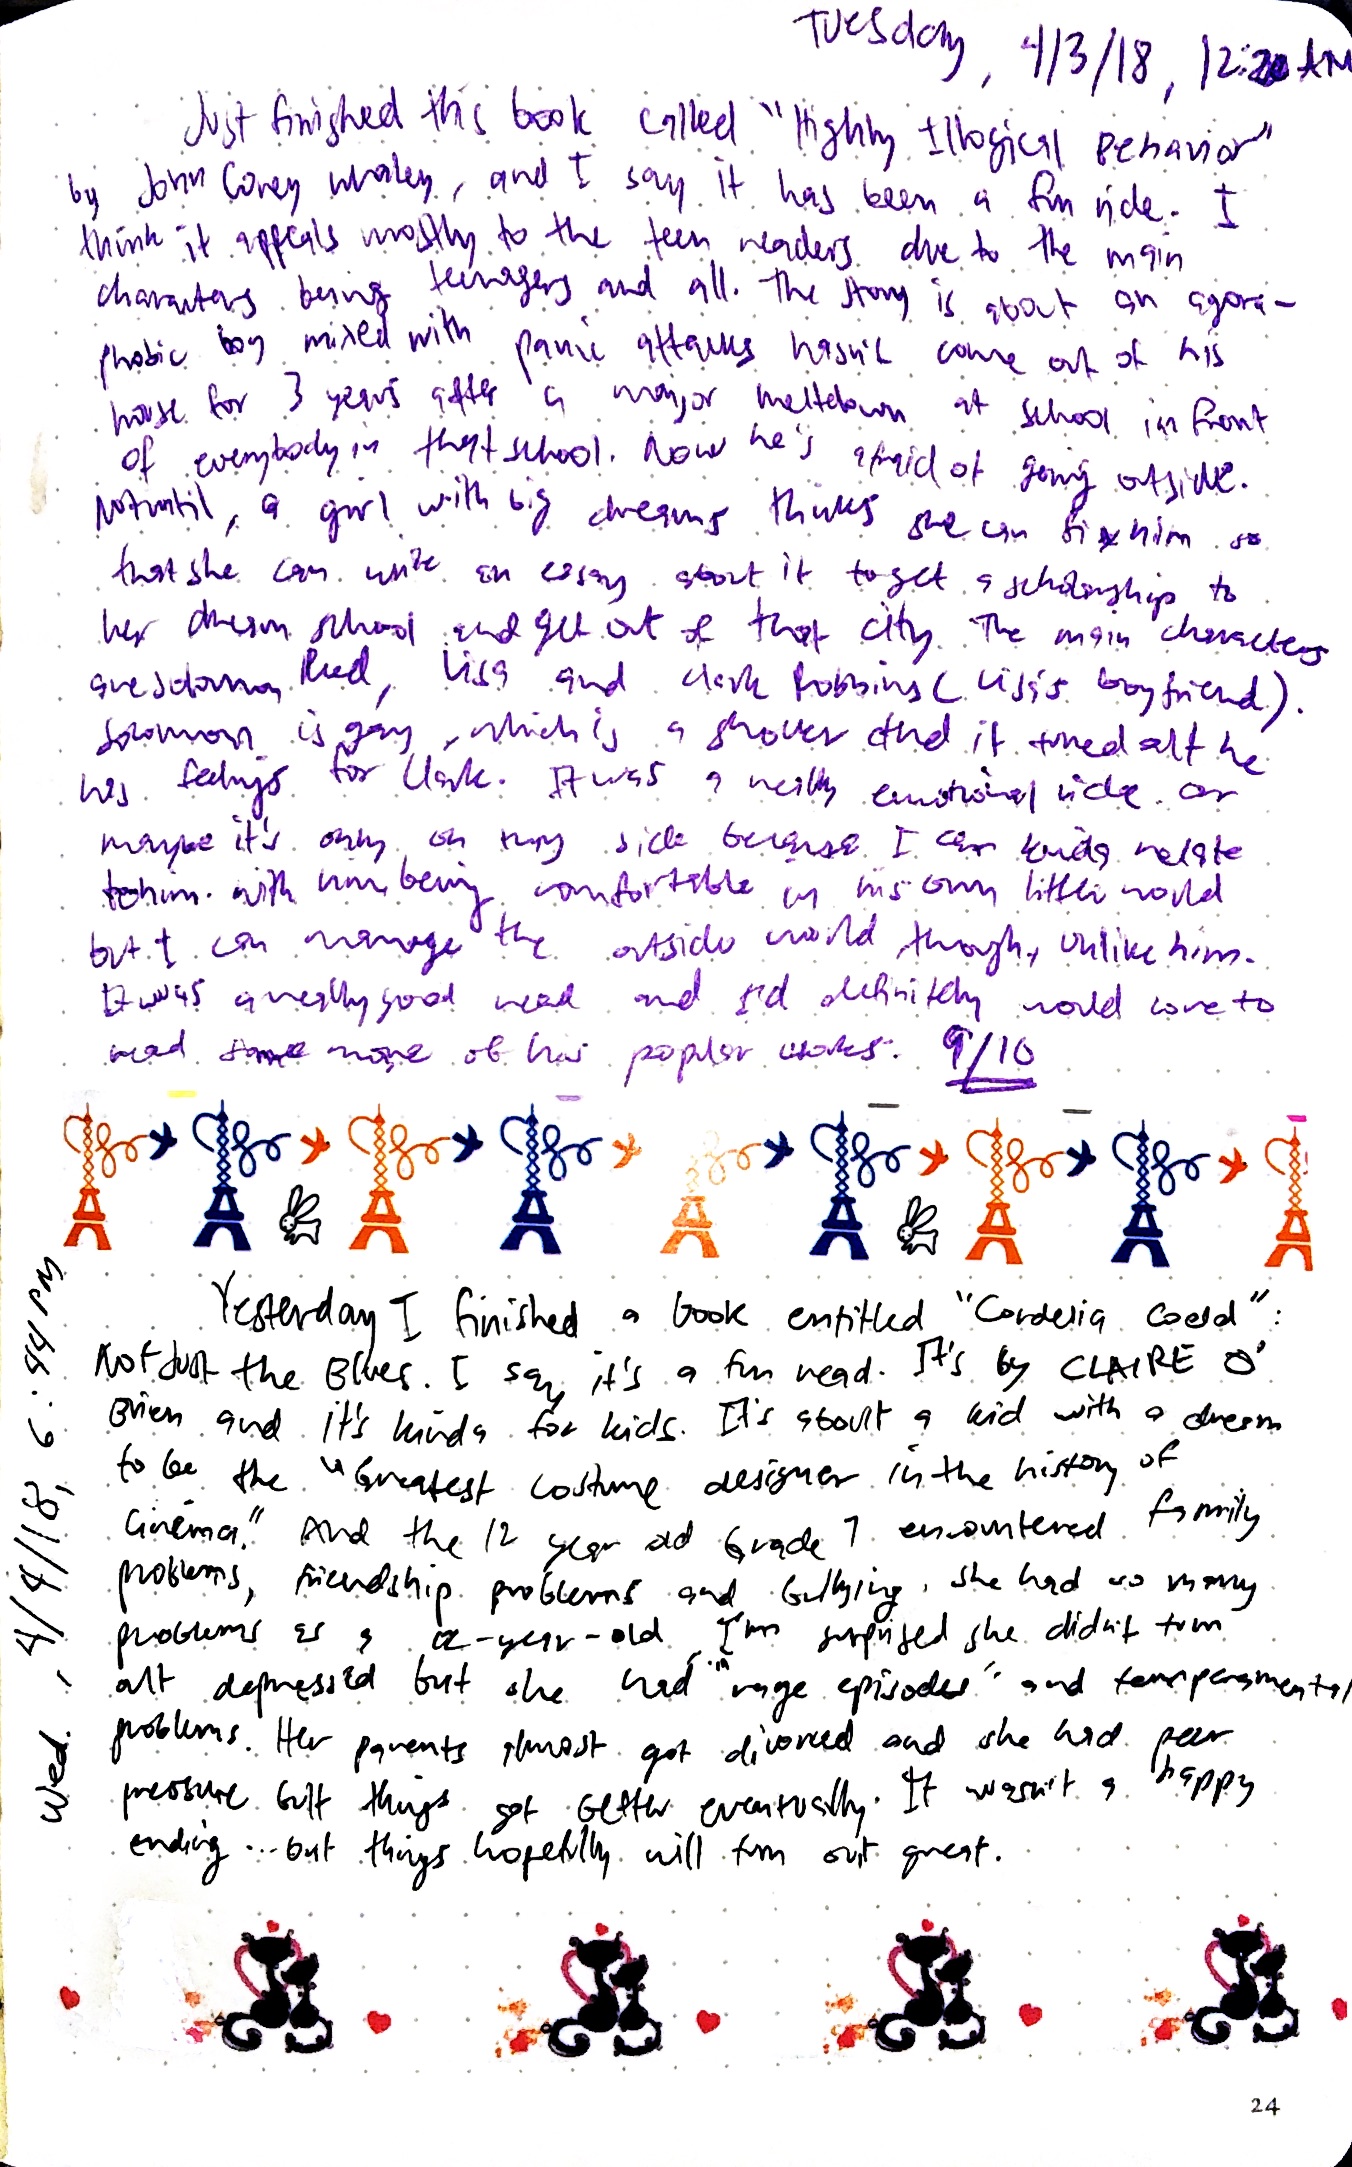 Tuesday, 4/3/18, 12:20 AM
Just finished this book called "Highly Illogical Behavior"
by John Corey Whaley, and I say it has been a fun ride. I
think it appeals mostly to the teen readers due to the main
characters being teenagers and all. The story is about an agora-
phobic boy mixed with panic attacks hasn't come out of his
house for 3 years after a major meltdown at school in front
of everybody in that school. Now he's afraid of going outside.
Not until, a girl with big dreams thinks she can fix him so
that she can write an essay about it to get a scholarship to
her dream school and get out of that city. The main characters
are Solomon Reed, Lisa and Clark Robbins (Lisa's boyfriend).
Solomon is gay, which is a shocker and it turned out he
has feelings for Clark. It was a really emotional ride or
maybe it's only on my side because I can kinda relate
to him. with him being comfortable in his own little world
but I can manage the outside world though, unlike him.
It was a really good read and I'd definitely would love to
read some more of his popular works. 9/10
Wed., 4/4/18, 6:44 PM
Yesterday I finished a book entitled "Cordelia Codd":
Not Just the Blues. I say it's a fun read. It's by CLAIRE O'
Brien and it's kinda for kids. It's about a kid with a dream
to be the "Greatest Costume designer in the history of
Cinema." And the 12 year old Grade 7 encountered family
problems, friendship problems and bullying. she had so many
problems as a 12-year-old, I'm surprised she didn't turn
out depressed but she had "rage episodes" and temperamental
problems. Her parents almost got divorced and she had peer
pressure but things got better eventually. It wasn't a happy
ending...but things hopefully will turn out great.
24